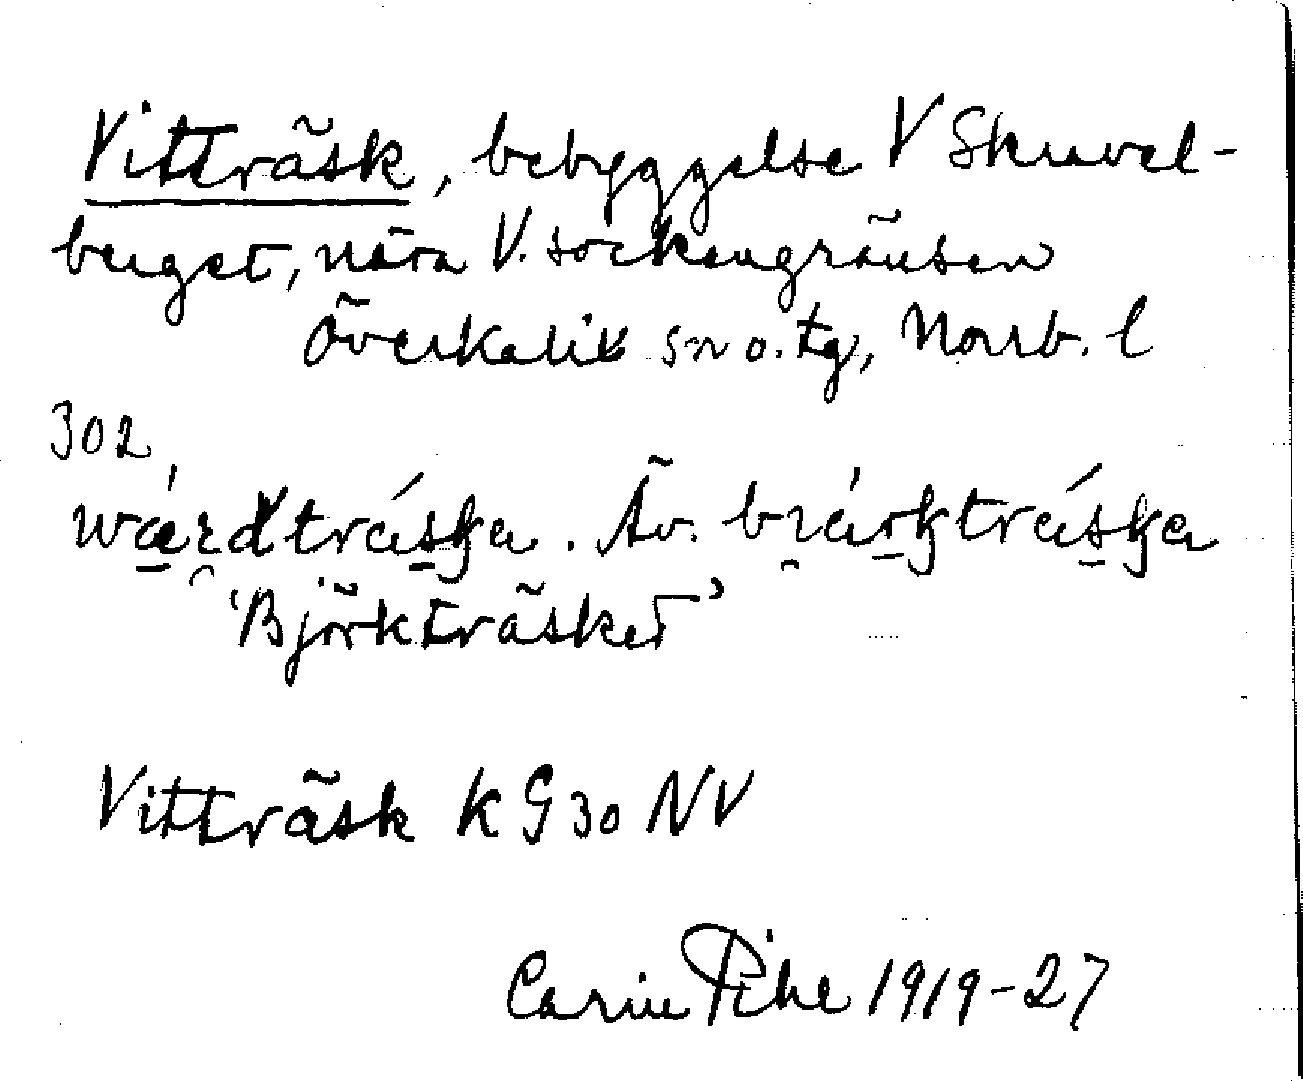 Vitträsk, bebyggelse V Skuvel-
berget, nära V. sockengränsen
Överkalix sn o. tg, Norrb. l
302
Äv.
'Björkträsket'
Vitträsk K G 30 NV
Carin Pihl 1919-27